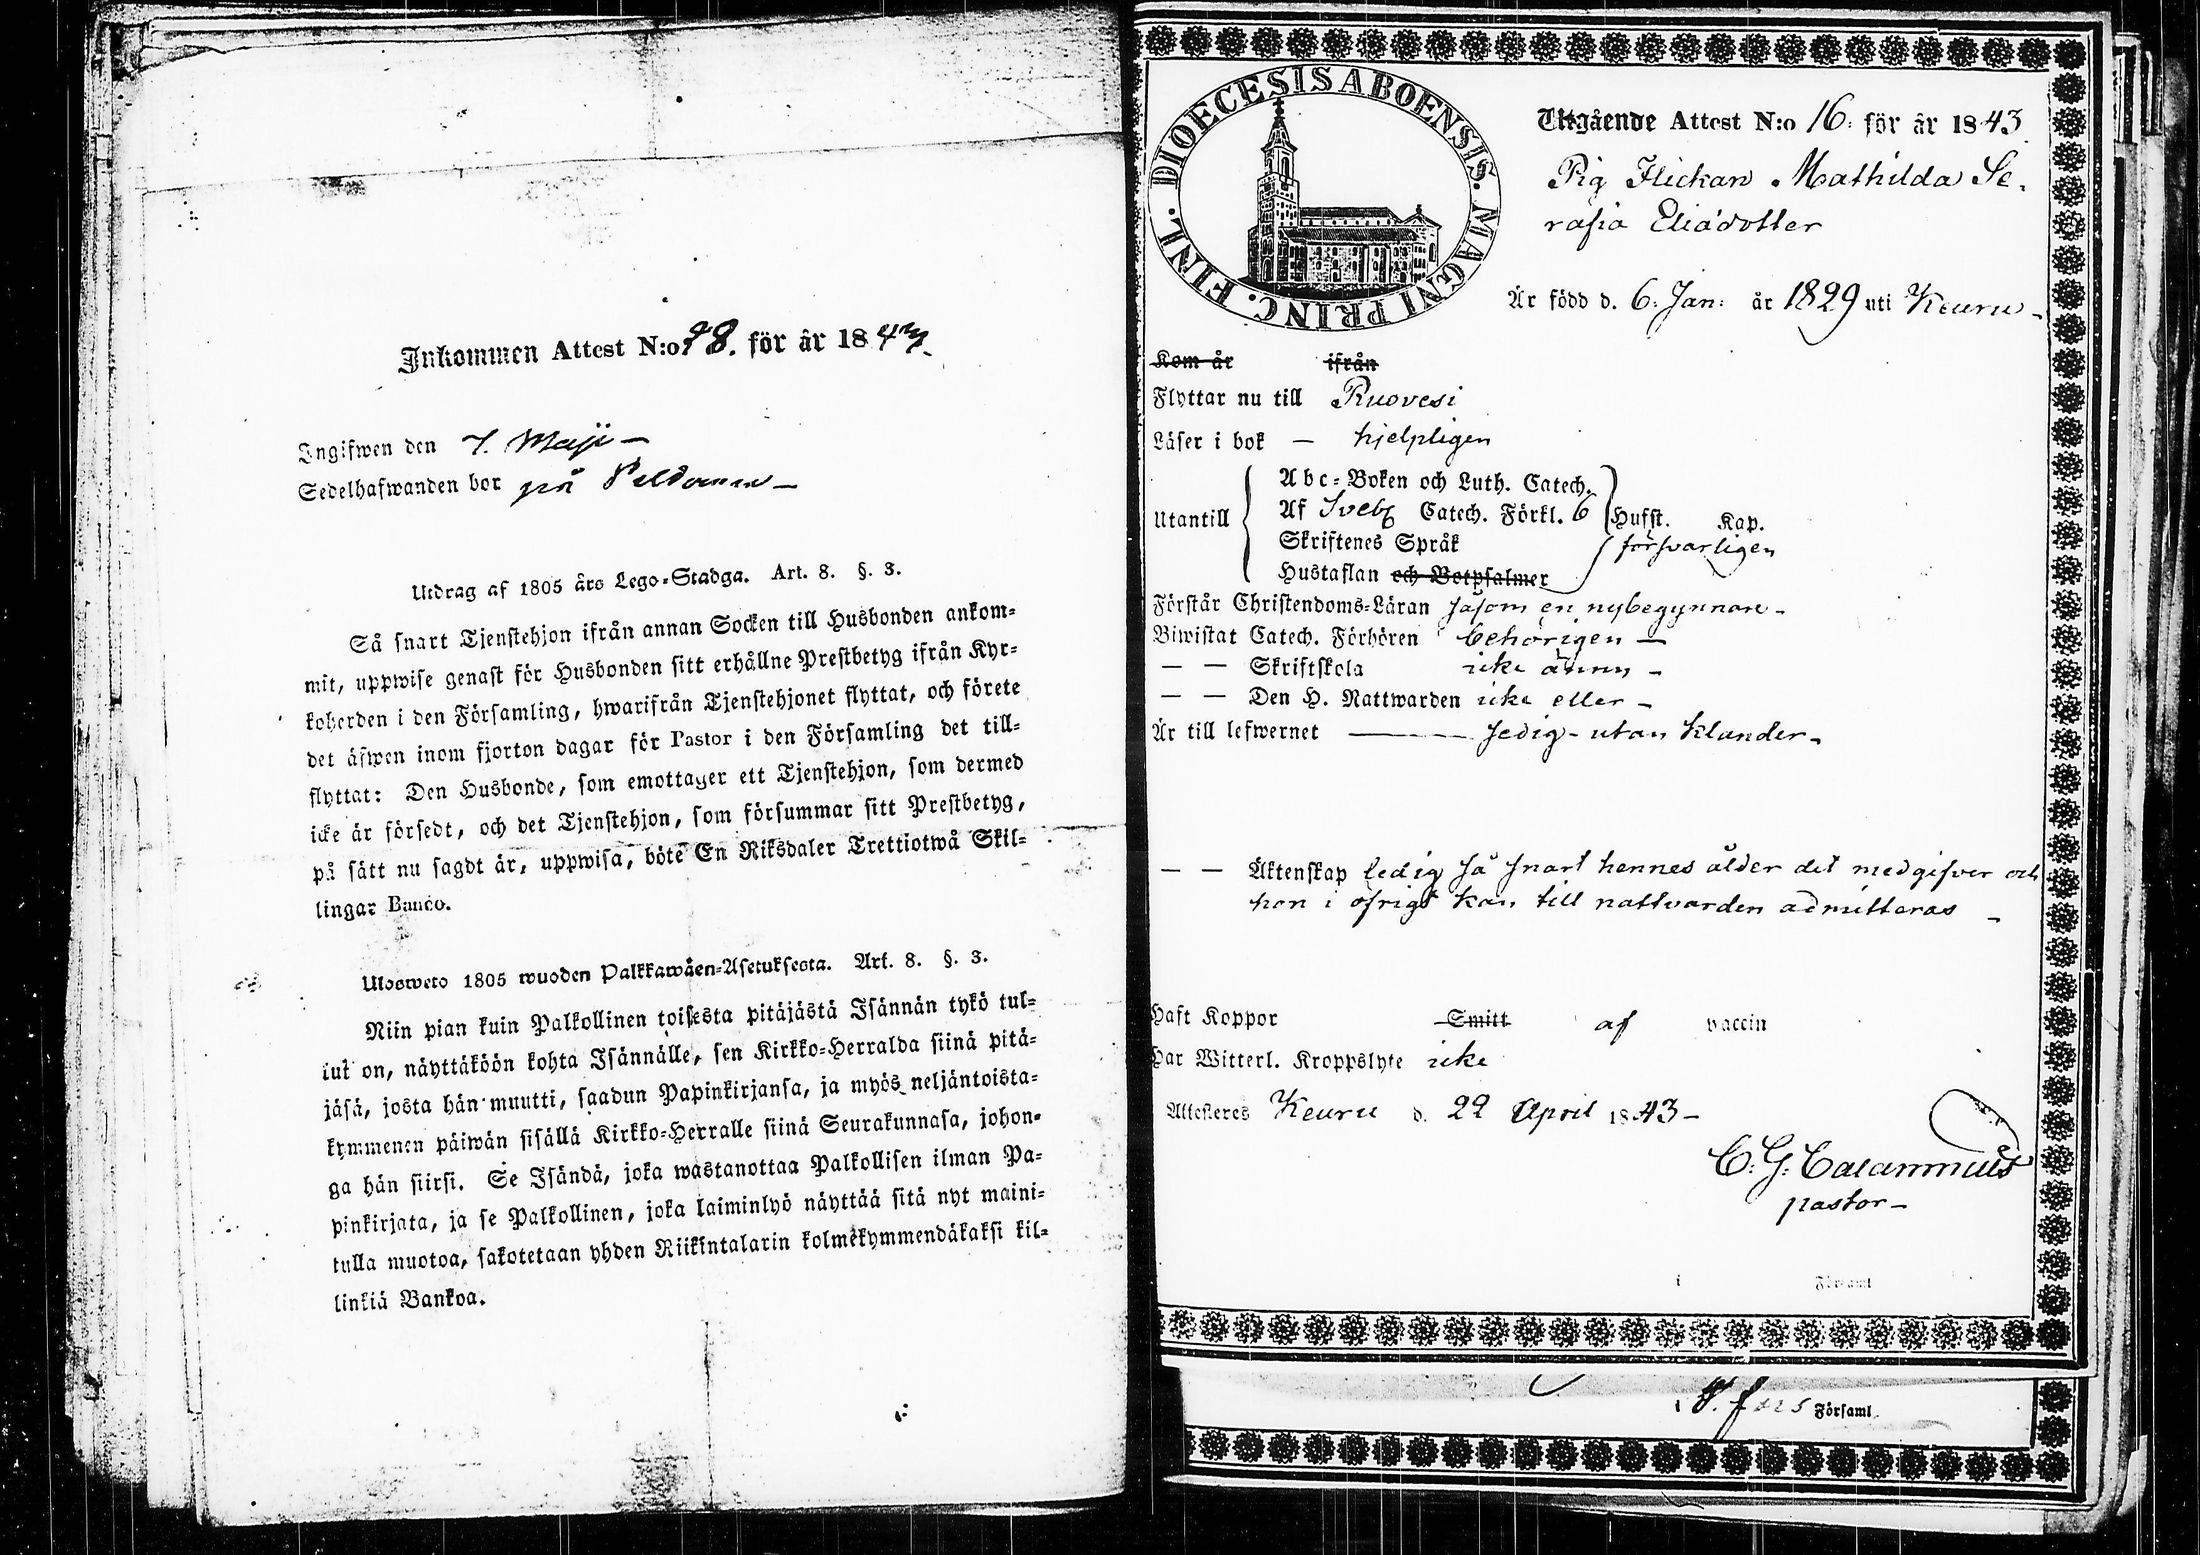 Inkommen Attest N:o 98. för år 1843.
Ingifwen den 7. Maji —
Sedelhafwanden bor på
Utdrag af 1805 års Lego-Stadga. Art. 8. §. 3.
Så snart Tjenstehjon ifrån annan Socken till Husbonden ankom-
mit, uppwise genast för Husbonden sitt erhållne Prestbetyg ifrån Kyr-
koherden i den Församling, hwarifrån Tjenstehjonet flyttat, och förete
det äfwen inom fjorton dagar för Pastor i den Församling det till-
flyttat: Den Husbonde, som emottager ett Tjenstehjon, som dermed
icke är försedt, och det Tjenstehjon, som försummar sitt Prestbetyg,
på sätt nu sagdt är, uppwisa, böte En Riksdaler Trettiotwå Skil-
lingar Banco.
Ulosweto 1805 wuoden Palkkawäen-Asetuksesta. Art. 8. §. 3.
Niin pian kuin Palkollinen toisesta pitäjästä Isännän tykö tul-
lut on, näyttäköön kohta Isännälle, sen Kirkko-Herralda siinä pitä-
jäsä, josta hän muutti, saadun Papinkirjansa, ja myös neljäntoista-
kymmenen päiwän sisällä Kirkko-Herralle siinä Seurakunnasa, johon-
ga hän siirsi. Se Isändä, joka wastanottaa Palkollisen ilman Pa-
pinkirjata, ja se Palkollinen, joka laiminlyö näyttää sitä nyt maini-
tulla muotoa, sakotetaan yhden Riikintalarin kolmekymmendäkaksi kil-
linkiä Bankoa.
DIOECESIS ABOENSIS. MAGNI PRINC. FINL.
Utgående Attest N:o 16. för år 1843
Pig Flickan Mathilda Se-
rafia Eliædotter
Är född d. 6. Jan: år 1829 uti Keuru —
Kom år ifrån
Flyttar nu till Ruovesi
Läser i bok — hjelpligen
Utantill
Abc-Boken och Luth. Catech.
Af Sveb. Catech. Förkl. 6 Hufst. Kap.
Skriftenes Språk försvarligen
Hustaflan och Botpsalmer
Förstår Christendoms-Läran såsom en nybegynnare —
Biwistat Catech. Förhören behörigen —
— — Skriftskola icke ännu —
— — Den H. Nattwarden icke eller —
Är till lefwernet — sedig — utan klander —
— — Äktenskap ledig så snart hennes ålder det medgifver och
hon i öfrigt kan till nattvarden admitteras —
Haft Koppor Smitt af vaccin
Har Witterl. Kroppslyte icke
Attesteres Keuru d. 22 April 1843 —
C. G. Calamnius
pastor —
i Församl.
i Församl.